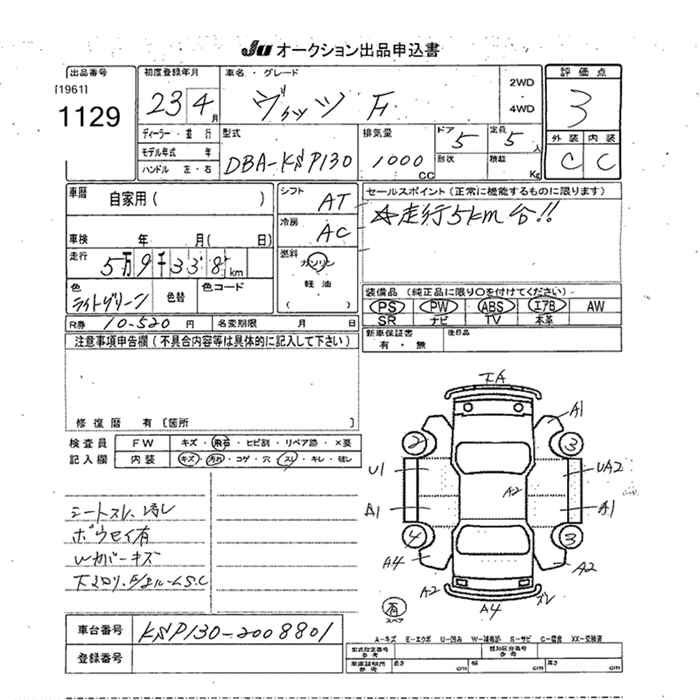 JU オークション出品申込書
出品番号
[1961]
1129
初度登録年月
23 4月
車名・グレード
ヴィッツ F
2WD・4WD
評価点
3
外装 内装
C C
ディーラー・並行
モデル年式 年
ハンドル 左・右
型式
DBA-KSP130
排気量
1000 CC
ドア 5
形状
定員 5人
積載 Kg
車歴 自家用( )
車検 年 月( 日)
走行 5万9千338km
色 ライトグリーン
色替
色コード
シフト AT
冷房 AC
燃料 ガソリン
軽油
( )
セールスポイント(正常に機能するものに限ります)
☆走行5km台!!
装備品(純正品に限り○を付けてください)
PS PW ABS エアB AW
SR ナビ TV 本革
新車保証書 有・無
後日品
R券 10-520円
名変期限 月 日
注意事項申告欄(不具合内容等は具体的に記入して下さい)
修復歴 有[箇所 ]
検査員記入欄
FW キズ・飛石・ヒビ割・リペア跡・×要
内装 キズ・汚れ・コゲ・穴・スレ・キレ・破レ
シートスレ、汚レ
ボウセイ有
Wカバーキズ
車台番号 KSP130-2008801
登録番号
エA
A1
2 3
U1 UA2
A2
A1 A1
4 3
A4 A2
A2 A4 ズレ
有
スペア
A-キズ E-エクボ U-凹み W-補修跡 S-サビ C-腐食 XX-交換済
型式指定番号 参考
類別区分番号 参考
車庫証明用 参考
長さ cm 幅 cm 高さ cm